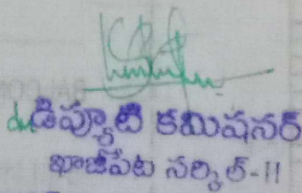 డిప్యూటి కమిషనర్
ఖాజీపేట సర్కిల్-II